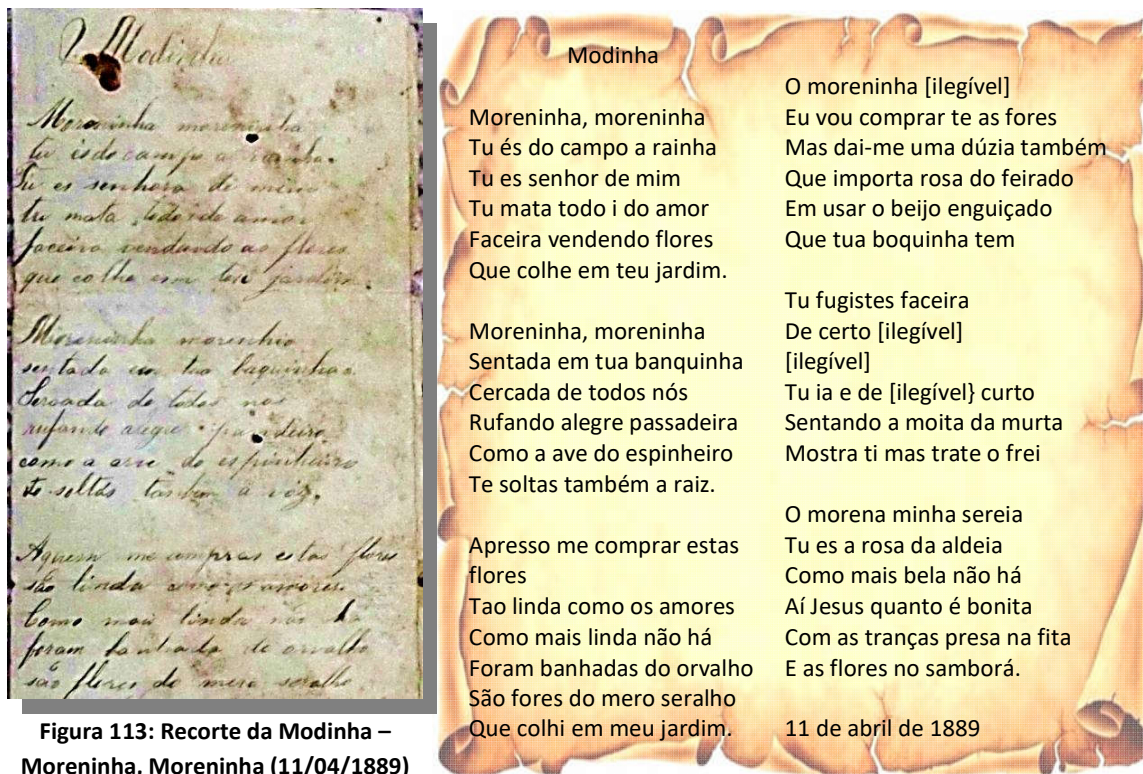 Modinha
Moreninha moreninha
tu campo a rainha.
Tu es senhora de mim
tu mata amor
faceira vendando as flores
que colhe em teu jardim.
Moreninha
sentada em tua baquinha
de todos nos
rufando alegre pandeiro
como a ave do espinheiro
te soltas a voz.
Aquem me compras estas flores
são linda amores.
Como mai linda não ha
foram banhada de orvalho
são flores de mero seralho
Figura 113: Recorte da Modinha –
Moreninha, Moreninha (11/04/1889)
Modinha
Moreninha, moreninha
Tu és do campo a rainha
Tu es senhor de mim
Tu mata todo i do amor
Faceira vendendo flores
Que colhe em teu jardim.
Moreninha, moreninha
Sentada em tua banquinha
Cercada de todos nós
Rufando alegre passadeira
Como a ave do espinheiro
Te soltas também a raiz.
Apresso me comprar estas
flores
Tao linda como os amores
Como mais linda não há
Foram banhadas do orvalho
São fores do mero seralho
Que colhi em meu jardim.
O moreninha [ilegível]
Eu vou comprar te as fores
Mas dai-me uma dúzia também
Que importa rosa do feirado
Em usar o beijo enguiçado
Que tua boquinha tem
Tu fugistes faceira
De certo [ilegível]
[ilegível]
Tu ia e de [ilegível} curto
Sentando a moita da murta
Mostra ti mas trate o frei
O morena minha sereia
Tu es a rosa da aldeia
Como mais bela não há
Aí Jesus quanto é bonita
Com as tranças presa na fita
E as flores no samborá.
11 de abril de 1889